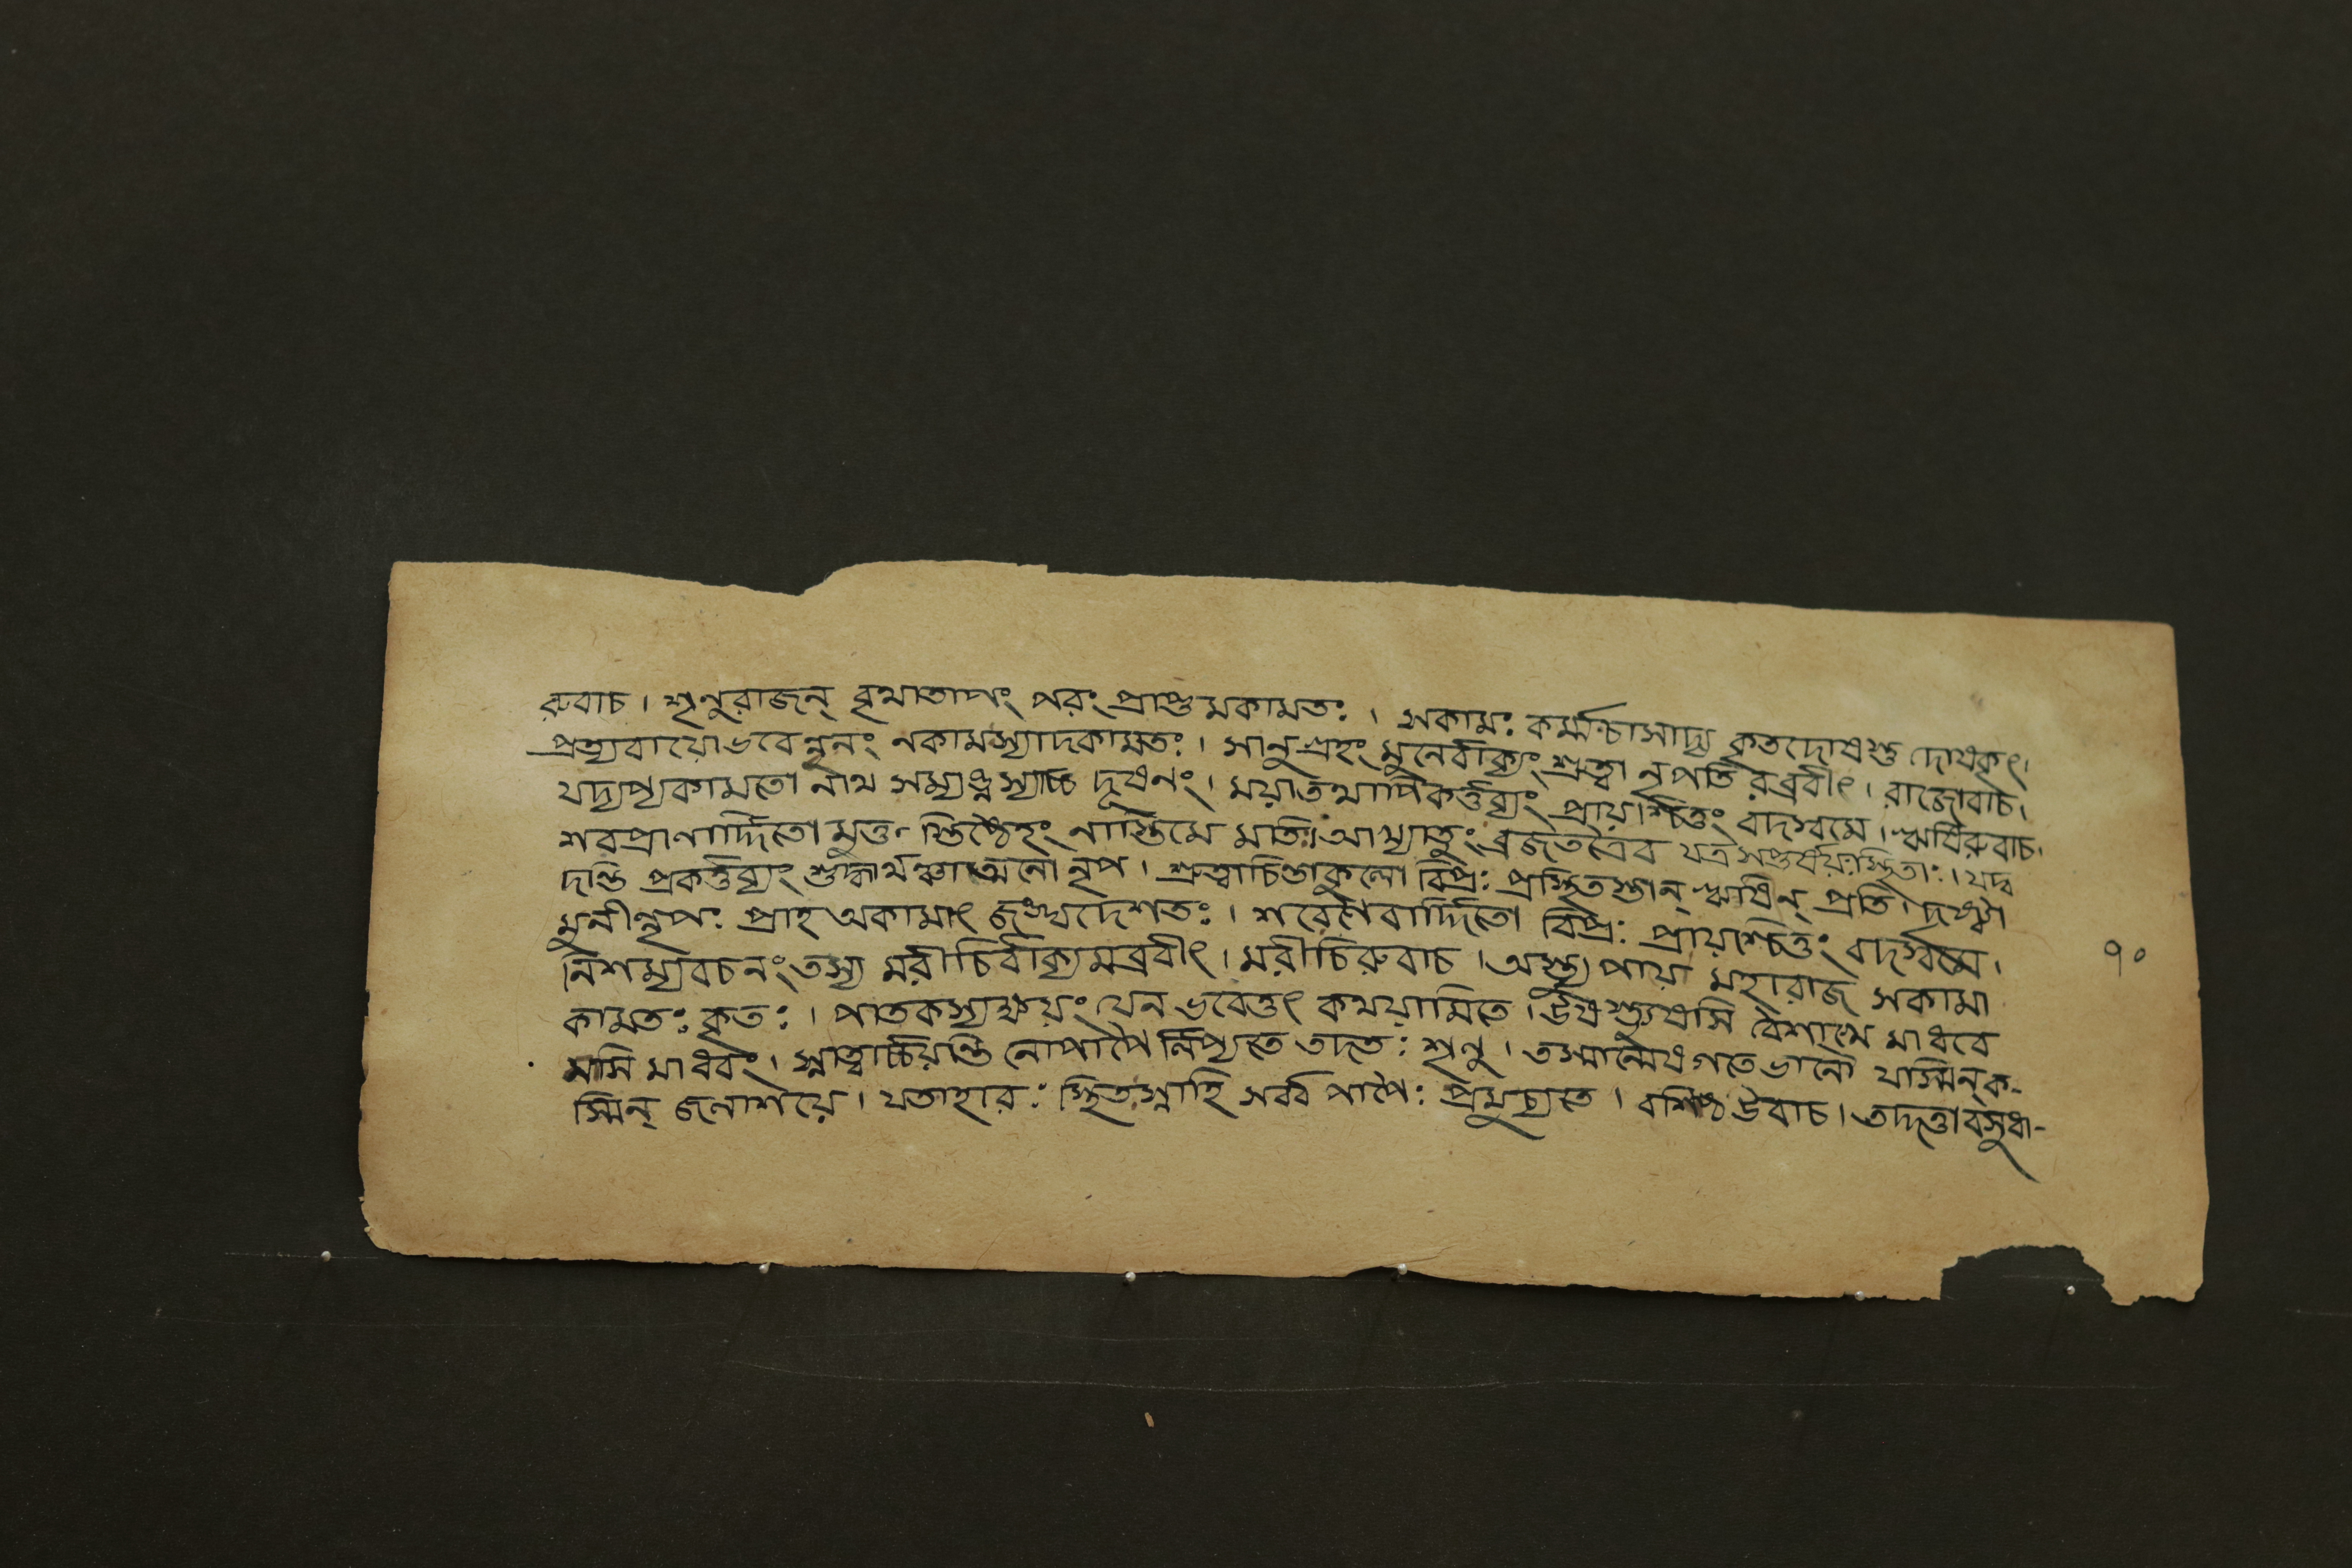 রুবাচ। শৃনুরাজন্ বৃথাতাপং পরং প্রাপ্তুমকামতঃ। সকামঃ কর্ম্মচাসাদ্য কৃতদোষস্তু দোষকৃৎ।
প্রত্যবায়োভবেন্নূনং নকামস্যাদকামতঃ। সানুগ্রহং মুনের্বাক্যং শ্রুত্বা নৃপতিরব্রবীৎ। রাজোবাচ।
যদ্যপ্যকামতো নাথ দূষনং। ময়াতথাপিকর্ত্তব্যং প্রায়শ্চিত্তং বদস্বমে। ঋষিরুবাচ।
শরপ্রাণার্দ্দিতো নাস্তিমে মতিঃ। আখ্যাতুং ব্রজতত্রৈব যত্র সপ্তর্ষয়ঃস্থিতাঃ। যদ্ব
দন্তি প্রকর্ত্তব্যং নৃপ। শ্রুত্বাচিন্তাকুলো বিপ্রঃ প্রস্থিতস্তান্ ঋষিন্ প্রতি। দৃষ্ট্বা
মুনীন্নৃপঃ প্রাহ অকামাৎ শরেণৈবার্দ্দিতো বিপ্রঃ প্রায়শ্চিত্তং বদস্বমে।
নিশম্যবচনংতস্য মরীচির্বাক্যমব্রবীৎ। মরীচিরুবাচ। অস্ত্যুপায়ো মহারাজ সকামা
কামতঃ কৃতঃ। পাতকস্যক্ষয়ং যেন ভবেত্তৎ কথয়ামিতে। বৈশাখে মাধবে
মাসি মাধবং। স্নাত্বার্চ্চয়ন্তি নোপাপৈ র্লিপ্যতে তদতঃ শৃনু। তস্মান্মেষগতেভানৌ যস্মিন্‌ক-
স্মিন্ জলাশয়ে। যতাহারঃ স্থিতস্নাহি সর্ব্ব পাপৈঃ প্রমুচ্যতে। বশিষ্ঠ উবাচ। তদ্দত্তাবসুধা-
৭০